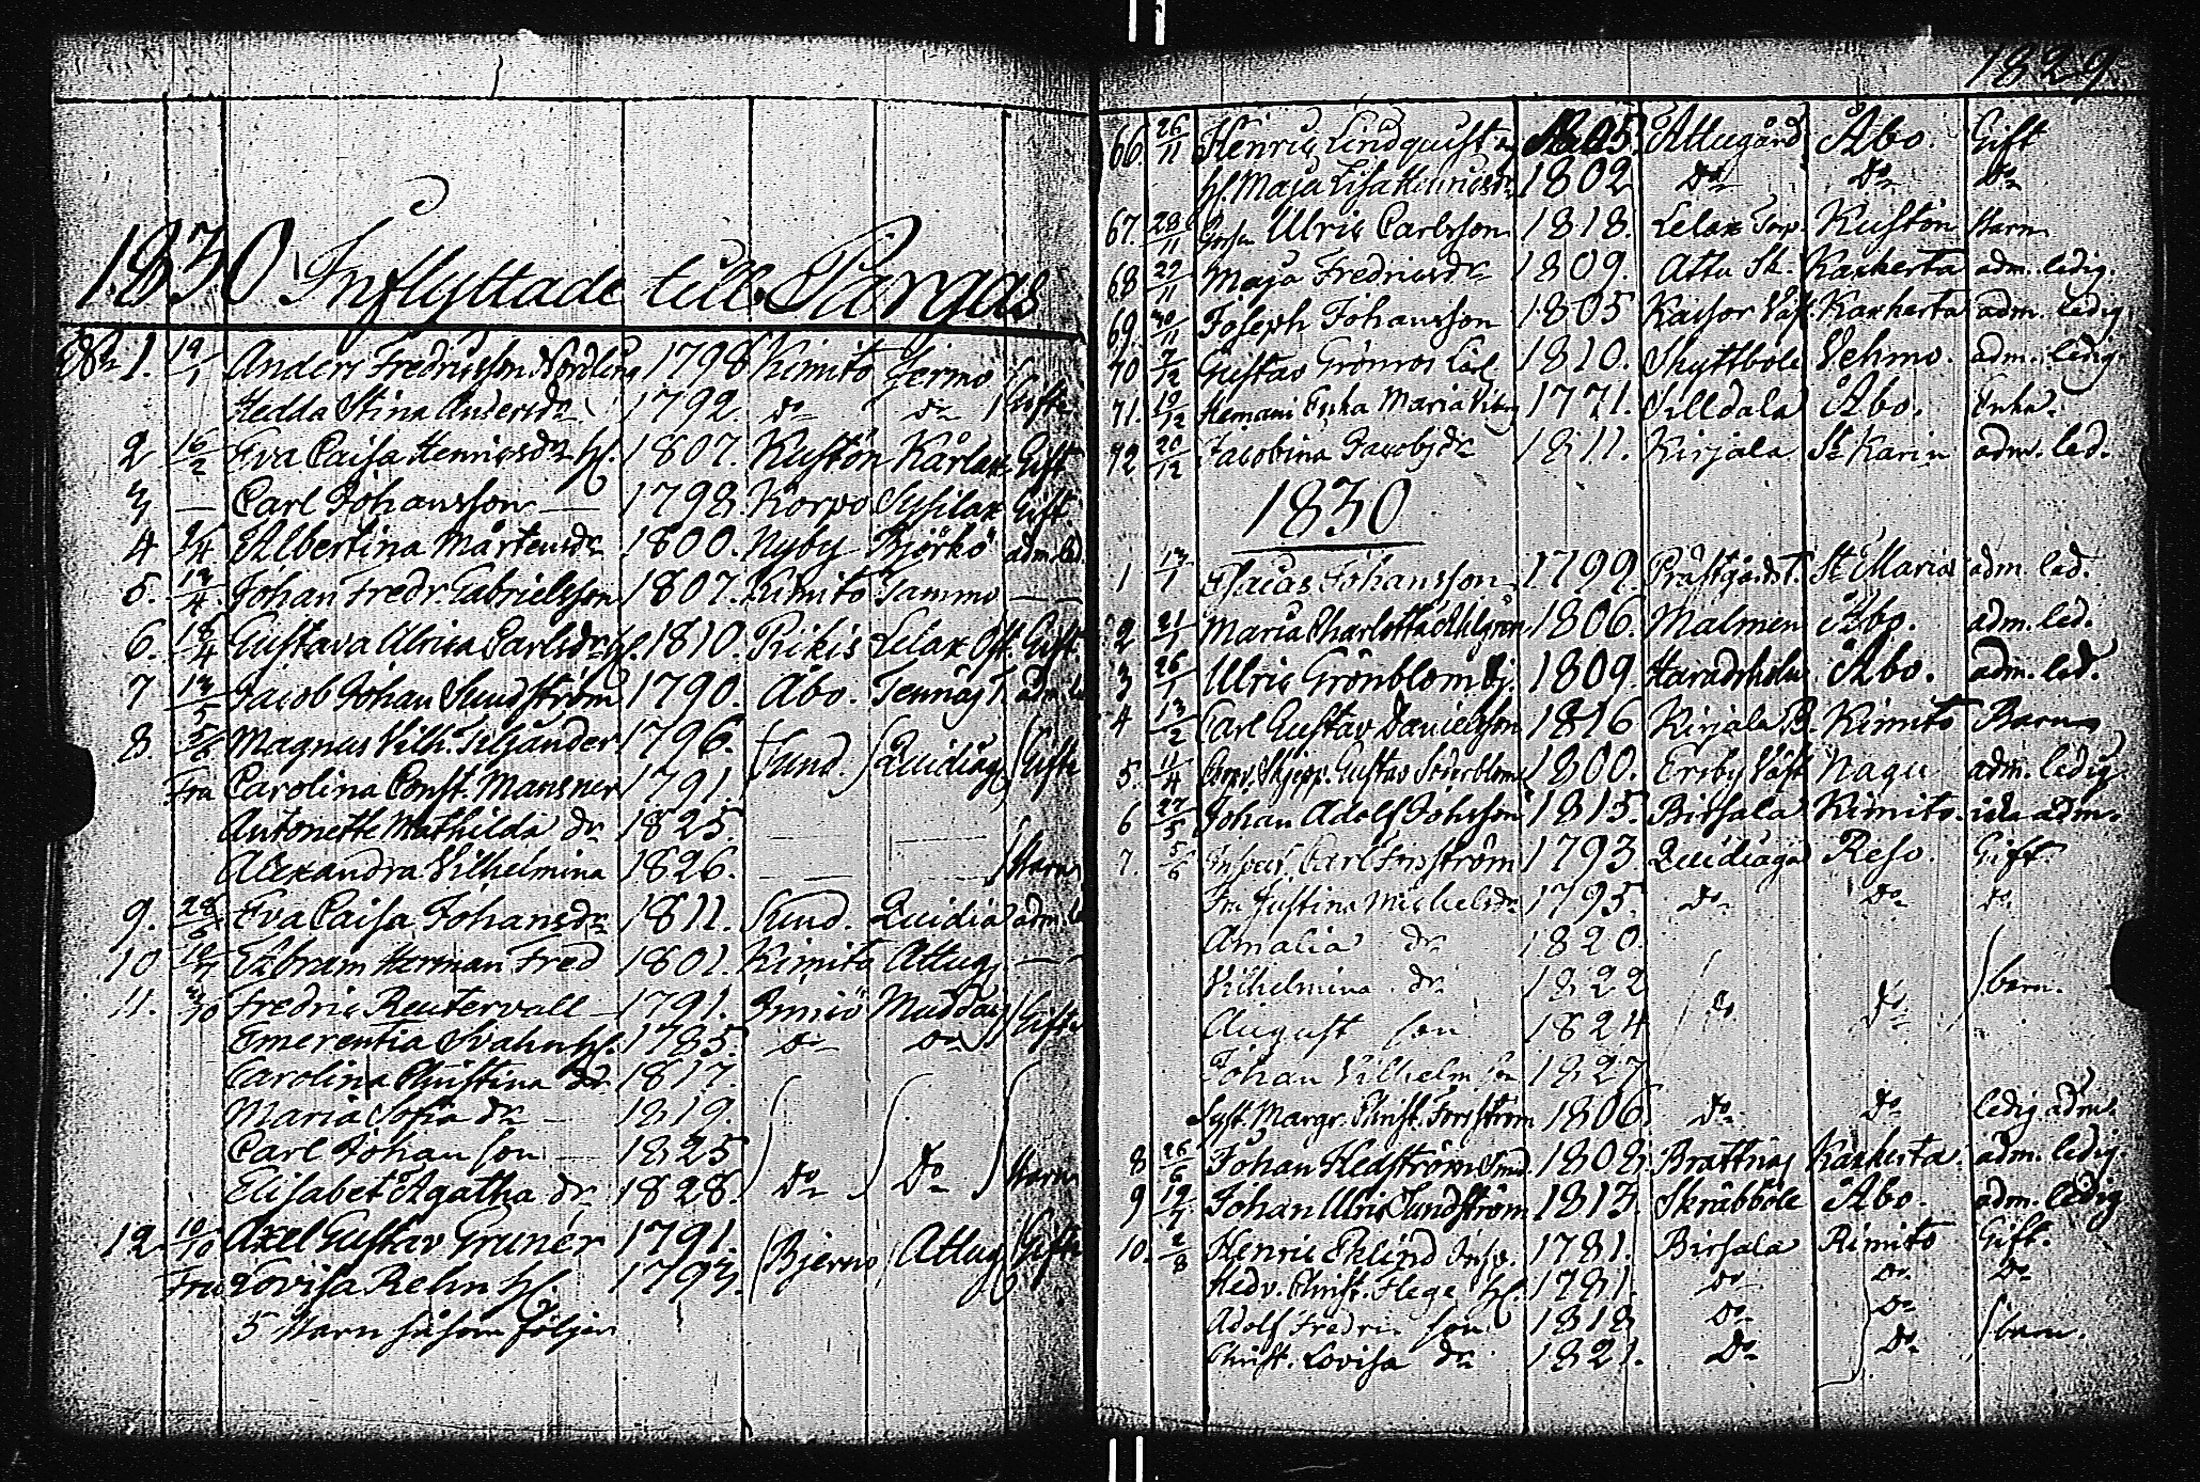 1830 Inflyttade till Pargas
1. 19/1 Anders Fredricsson Nordling 1798 Kimito Jermo
Hedda Stina Andersdr 1792. do do Gifte
2 16/2 Eva Caisa Henricsdr h. 1807. Kustön Kårlax Gift
3 — Carl Johansson — 1798 Korpo Sysilax Gift.
4 Albertina Mårtensdr 1800. Nyby Björkö adm. led.
5. 13/4 Johan Fredr. Gabrielsson 1807. Kimito Tammo —
6. 18/4 Gustava Ulrica Carlsdr h. 1810. Pikis Lelax Öst. Gift.
7 13/5 Jacob Johan Sundström 1790. Åbo. Tennäs T. adm. le
8. 5/6 Magnus Vilh. Tiljander 1796. Sund. Quidiag Gifte
Fru Carolina Const. Mansner 1791.
Antonette Mathilda dr 1825.
Alexandra Vilhelmina 1826. — — Barn
9. 28/6 Eva Caisa Johansdr 1811. Sund. Quidia adm. l
10 Abram Herman Fred 1801. Kimito Attug —
11. Fredric Reutervall — 1791. Mudda Gifte
Emerentia Svahn h. 1785. do do
Carolina Christina dr 1817.
Maria Sofia dr — 1819.
Carl Johan son — 1825
Elisabet Agatha dr 1828. do do Barn
12 10/10 Axel Gustav Gruner 1791. Bjerno Attug Gifte
Fru Lovisa Rehn h. 1793.
5 Barn såsom följer
1829.
66. 26/11 Henric Lindquist 1805. Attugård Åbo. Gift
h. Maja Lisa Henricsdr 1802 do do do
67. 28/11 Gossen Ulric Carlsson 1818. Lelax Torp. Kustön Barn
68 29/11 Maja Fredricsdr 1809. Attu Sk. Kaxkerta adm. ledig.
69. 30/11 Joseph Johansson 1805 Kaisor Väst. Kaxkerta adm. ledig
70 7/12 Gustav Grönros 1810. Skyttbole Vehmo. adm. ledig.
71. 19/12 Enka Maria 1771. Silldala Åbo. Enka.
72 20/12 Jacobina Jacobsdr 1811. Kirjala St Karin adm. led.
1830
1 13/1 Esaias Johansson 1799. Prästgårdst. St Maria adm. led.
2 21/1 Maria Charlotta Ahlgren 1806. Malmen Åbo. adm. led.
3 26/1 Ulric Grönblom 1809. Haradsholm Åbo. adm. led.
4 13/2 Carl Gustav Danielsson 1816 Kirjala B. Kimito Barn
5. 11/4 Skepp. Gustav Söderblom 1800. Ersby Väst Nagu adm. ledig
6 27/5 Johan Adolf Johsson 1815. Birsala Kimito. icke adm.
7. 5/6 Inspect. Carl Forsström 1793. Quidiaga Reso. Gift.
Fru Justina Michelsdr 1795. do do do
Amalia dr 1820.
Vilhelmina dr 1822
August son 1824 do do barn.
Johan Vilhelm son 1827
Syst. Margr. Christ. Forsström 1806 do do ledig adm.
8 26/6 Johan Hedström Smed. 1808. Brattnäs Kaxkerta adm. ledig
9 19/7 Johan Ulric Sundström 1813. Skräbböle Åbo. adm. ledig
10. 2/8 Henric Eklind Insp. 1781. Birsala Kimito Gift.
Hedv. Christ. Flege h. 1781. do do do
Adolf Fredric son 1818 do do barn.
Christ. Lovisa dr 1821. do do